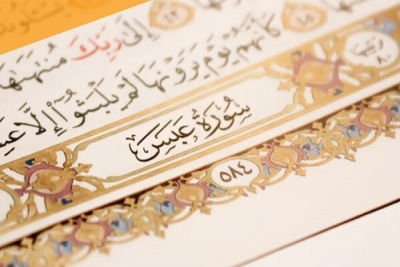 إِلَىٰ رَبِّكَ مُنتَهَىٰهَا
٤٥ كَأَنَّهُمْ يَوْمَ يَرَوْنَهَا لَمْ يَلْبَثُوٓا۟ إِلَّا
سُورَةُ عَبَسَ
٥٨٤